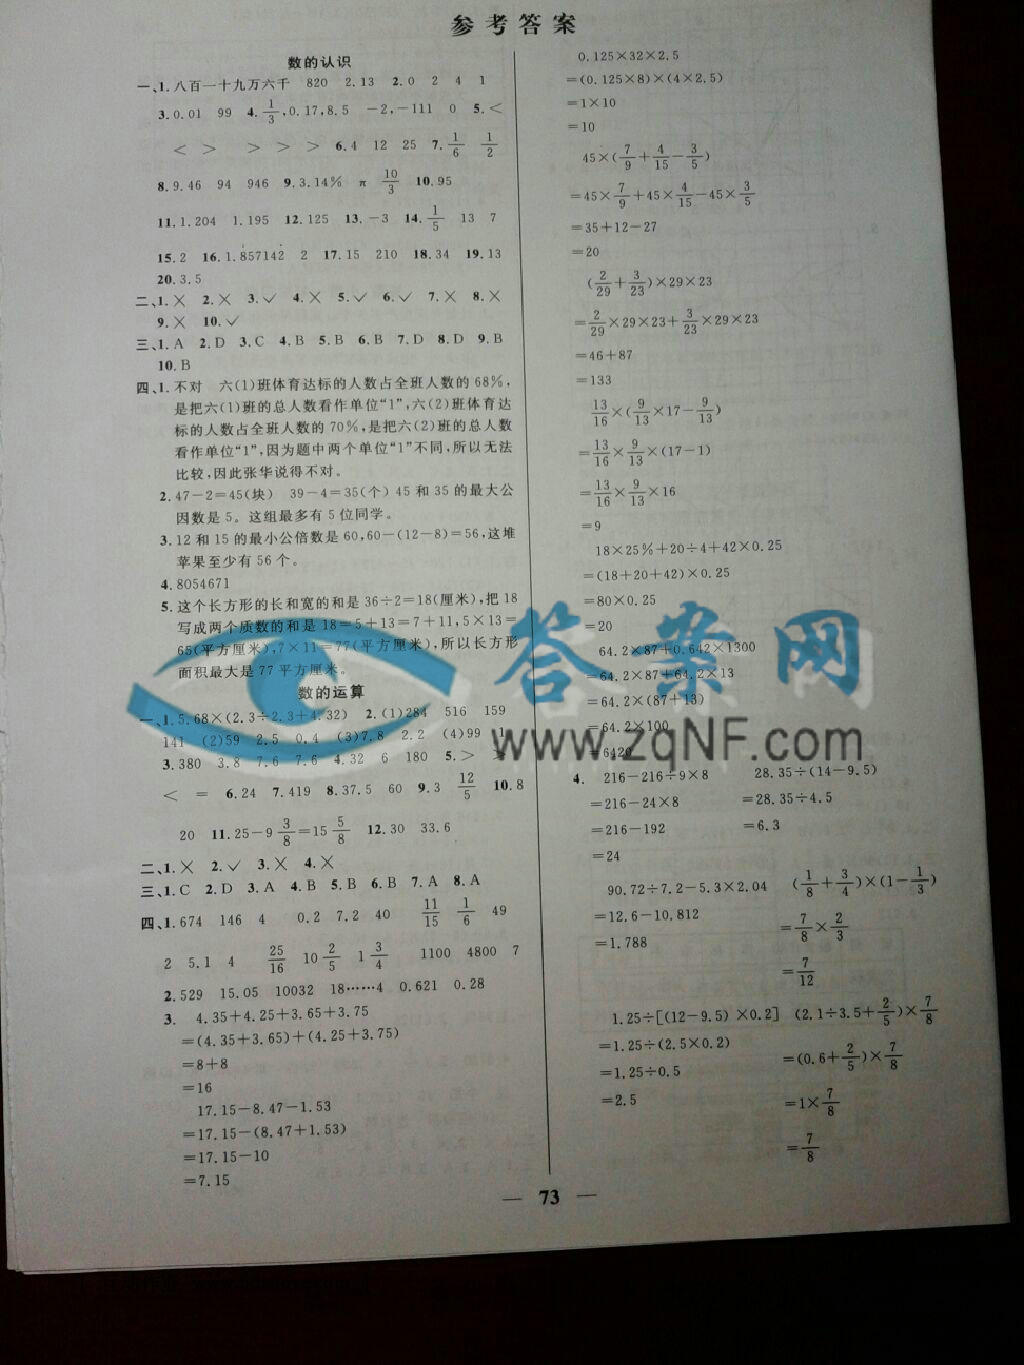 参考答案
数的认识
一、1.八百一十九万六千 820 2.13 2.0 2 4 1
3.0.01 99 4.1/3,0.17,8.5 -2,-111 0 5.<
< > > > > 6.4 12 25 7.1/6 1/2
8.9.46 94 946 9.3.14% π 10/3 10.95
11.1.204 1.195 12.125 13.-3 14.1/5 13 7
15.2 16.1.8̇57142̇ 2 17.15 210 18.34 19.13
20.3.5
二、1.× 2.× 3.√ 4.× 5.√ 6.√ 7.× 8.×
9.× 10.√
三、1.A 2.D 3.C 4.B 5.B 6.B 7.D 8.D 9.B
10.B
四、1.不对 六(1)班体育达标的人数占全班人数的68%,
是把六(1)班的总人数看作单位“1”,六(2)班体育达
标的人数占全班人数的70%,是把六(2)班的总人数
看作单位“1”,因为题中两个单位“1”不同,所以无法
比较,因此张华说得不对。
2.47-2=45(块) 39-4=35(个) 45和35的最大公
因数是5。这组最多有5位同学。
3.12和15的最小公倍数是60,60-(12-8)=56,这堆
苹果至少有56个。
4.8054671
5.这个长方形的长和宽的和是36÷2=18(厘米),把18
写成两个质数的和是18=5+13=7+11,5×13=
65(平方厘米),7×11=77(平方厘米),所以长方形
面积最大是77平方厘米。
数的运算
一、1.5.68×(2.3÷2.3+4.32) 2.(1)284 516 159
141 (2)59 2.5 0.4 (3)7.8 2.2 (4)99 1
3.380 3.8 7.6 7.6 4.32 6 180 5.>
< = 6.24 7.419 8.37.5 60 9.3 12/5 10.8
20 11.25-9 3/8=15 5/8 12.30 33.6
二、1.× 2.√ 3.× 4.×
三、1.C 2.D 3.A 4.B 5.B 6.B 7.A 8.A
四、1.674 146 4 0.2 7.2 40 11/15 1/6 49
2 5.1 4 25/16 10 2/5 1 3/4 1100 4800 7
2.529 15.05 10032 18……4 0.621 0.28
3. 4.35+4.25+3.65+3.75
=(4.35+3.65)+(4.25+3.75)
=8+8
=16
17.15-8.47-1.53
=17.15-(8.47+1.53)
=17.15-10
=7.15
0.125×32×2.5
=(0.125×8)×(4×2.5)
=1×10
=10
45×(7/9+4/15-3/5)
=45×7/9+45×4/15-45×3/5
=35+12-27
=20
(2/29+3/23)×29×23
=2/29×29×23+3/23×29×23
=46+87
=133
13/16×(9/13×17-9/13)
=13/16×9/13×(17-1)
=13/16×9/13×16
=9
18×25%+20÷4+42×0.25
=(18+20+42)×0.25
=80×0.25
=20
64.2×87+0.642×1300
=64.2×87+64.2×13
=64.2×(87+13)
=64.2×100
=6420
4. 216-216÷9×8 28.35÷(14-9.5)
=216-24×8 =28.35÷4.5
=216-192 =6.3
=24
90.72÷7.2-5.3×2.04 (1/8+3/4)×(1-1/3)
=12.6-10.812 =7/8×2/3
=1.788 =7/12
1.25÷[(12-9.5)×0.2] (2.1÷3.5+2/5)×7/8
=1.25÷(2.5×0.2) =(0.6+2/5)×7/8
=1.25÷0.5 =1×7/8
=2.5 =7/8
— 73 —
答业网
www.zqNF.com